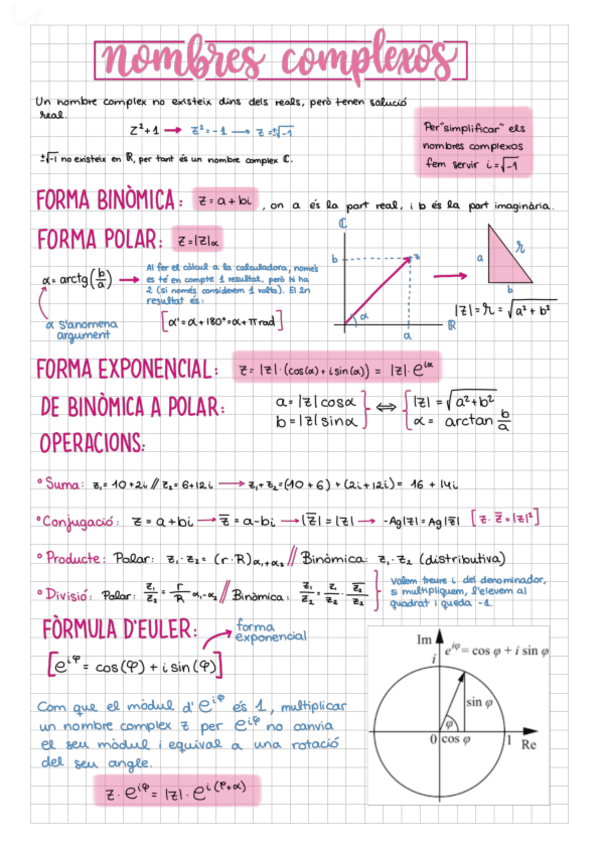 nombres complexos
Un nombre complex no existeix dins dels reals, però tenen solució
real.
Z²+1 → Z²=-1 → z=±√-1
±√-1 no existeix en ℝ, per tant és un nombre complex ℂ.
Per "simplificar" els
nombres complexos
fem servir i=√-1
FORMA BINÒMICA: z=a+bi, on a és la part real, i b és la part imaginària.
FORMA POLAR: z=|z|α
α=arctg(b/a) →
Al fer el càlcul a la calculadora, només
es té en compte 1 resultat, però hi ha
2 (si només considerem 1 volta). El 2n
resultat és:
[α'=α+180º=α+π rad]
α s'anomena
argument
ℂ
b
z
α
a
ℝ
a
r
b
|z|=r=√a²+b²
FORMA EXPONENCIAL: z=|z|·(cos(α)+isin(α))=|z|·e^iα
DE BINÒMICA A POLAR:
a=|z|cosα
b=|z|sinα
⇔
|z|=√a²+b²
α=arctan b/a
OPERACIONS:
° Suma: z₁=10+2i // z₂=6+12i → z₁+z₂=(10+6)+(2i+12i)=16+14i
° Conjugació: z=a+bi → z̅=a-bi → |z̅|=|z| → -Ag|z|=Ag|z̅| [z·z̅=|z|²]
° Producte: Polar: z₁·z₂=(r·R)α₁+α₂ // Binòmica: z₁·z₂ (distributiva)
° Divisió: Polar: z₁/z₂=r/R α₁-α₂ // Binòmica: z₁/z₂=z₁/z₂·z̅₂/z̅₂
Volem treure i del denominador,
si multipliquem, l'elevem al
quadrat i queda -1
FÒRMULA D'EULER:
forma
exponencial
[e^iφ=cos(φ)+isin(φ)]
Com que el mòdul d'e^iφ és 1, multiplicar
un nombre complex z per e^iφ no canvia
el seu mòdul i equival a una rotació
del seu angle.
z·e^iφ=|z|·e^i(φ+α)
Im
e^iφ=cos φ + i sin φ
i
sin φ
φ
0
cos φ
1
Re